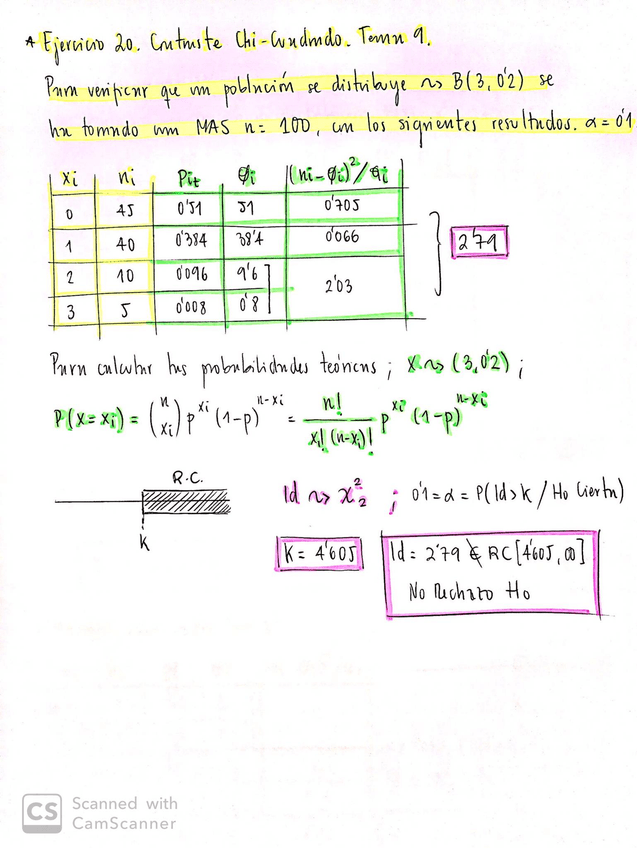 * Ejercicio 20. Contraste Chi-Cuadrado. Tema 9.
Para verificar que una población se distribuye ~> B(3, 0'2) se
ha tomado una MAS n= 100, con los siguientes resultados. α=0'1
xi ni Pit Øi (ni-Øi)²/Øi
0 45 0'51 51 0'705
1 40 0'384 38'4 0'066
2 10 0'096 9'6
2'03
3 5 0'008 0'8
2'79
Para calcular las probabilidades teóricas ; X ~> (3,0'2) ;
P(X=xi) = (n xi) p^xi (1-p)^n-xi = n! / xi! (n-xi)! p^xi (1-p)^n-xi
R.C.
K
Id ~> X²₂ ; 0'1 = α = P(Id>K / Ho Cierta)
K = 4'605
Id = 2'79 ∉ RC [4'605, ∞]
No rechazo Ho
CS Scanned with
CamScanner